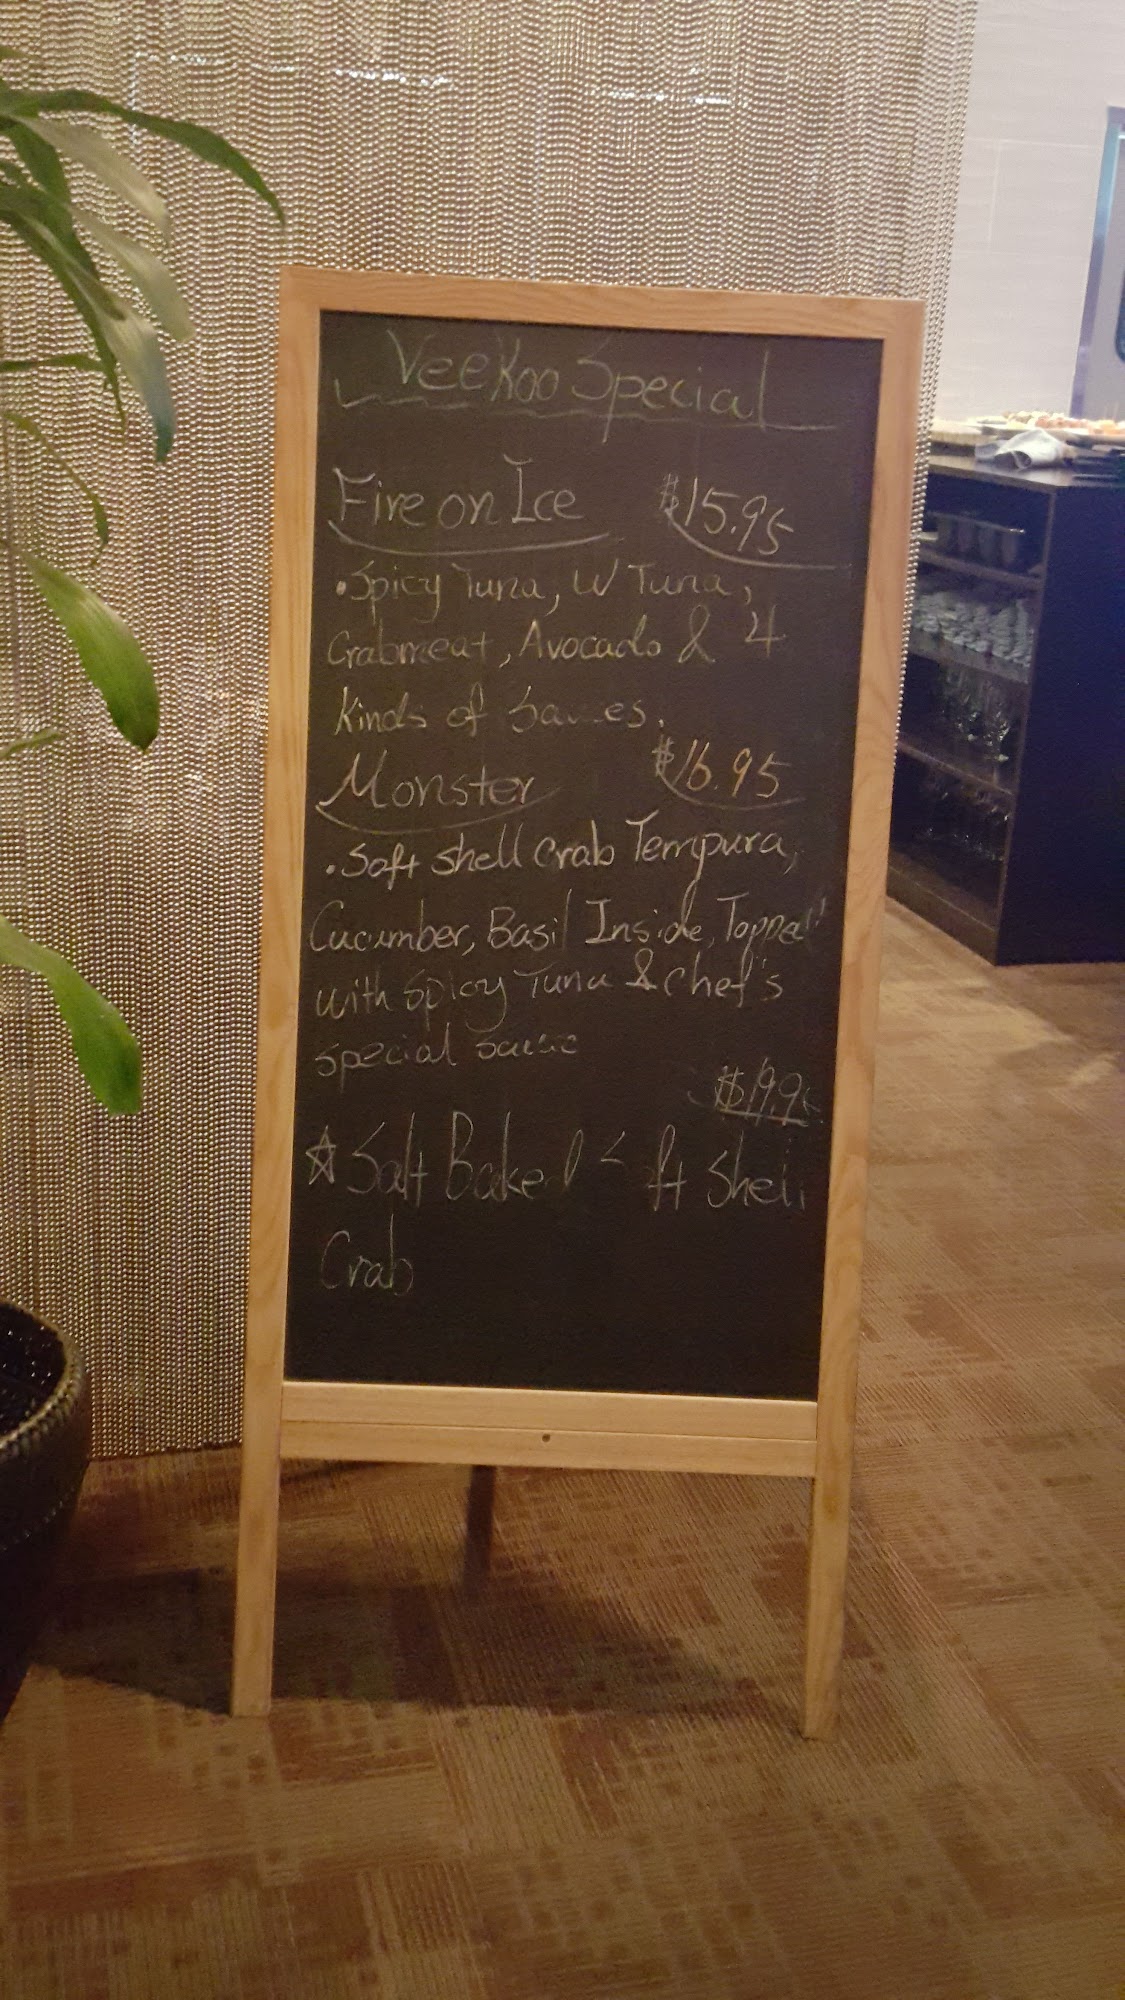 VeeKoo Special
Fire on Ice $15.95
• Spicy Tuna, W Tuna,
Crabmeat, Avocado & 4
Kinds of Sauces.
Monster $16.95
• Soft shell crab Tempura,
Cucumber, Basil Inside, Topped
with Spicy Tuna & Chef's
special sauce
$19.95
☆ Salt Baked Soft Shell
Crab